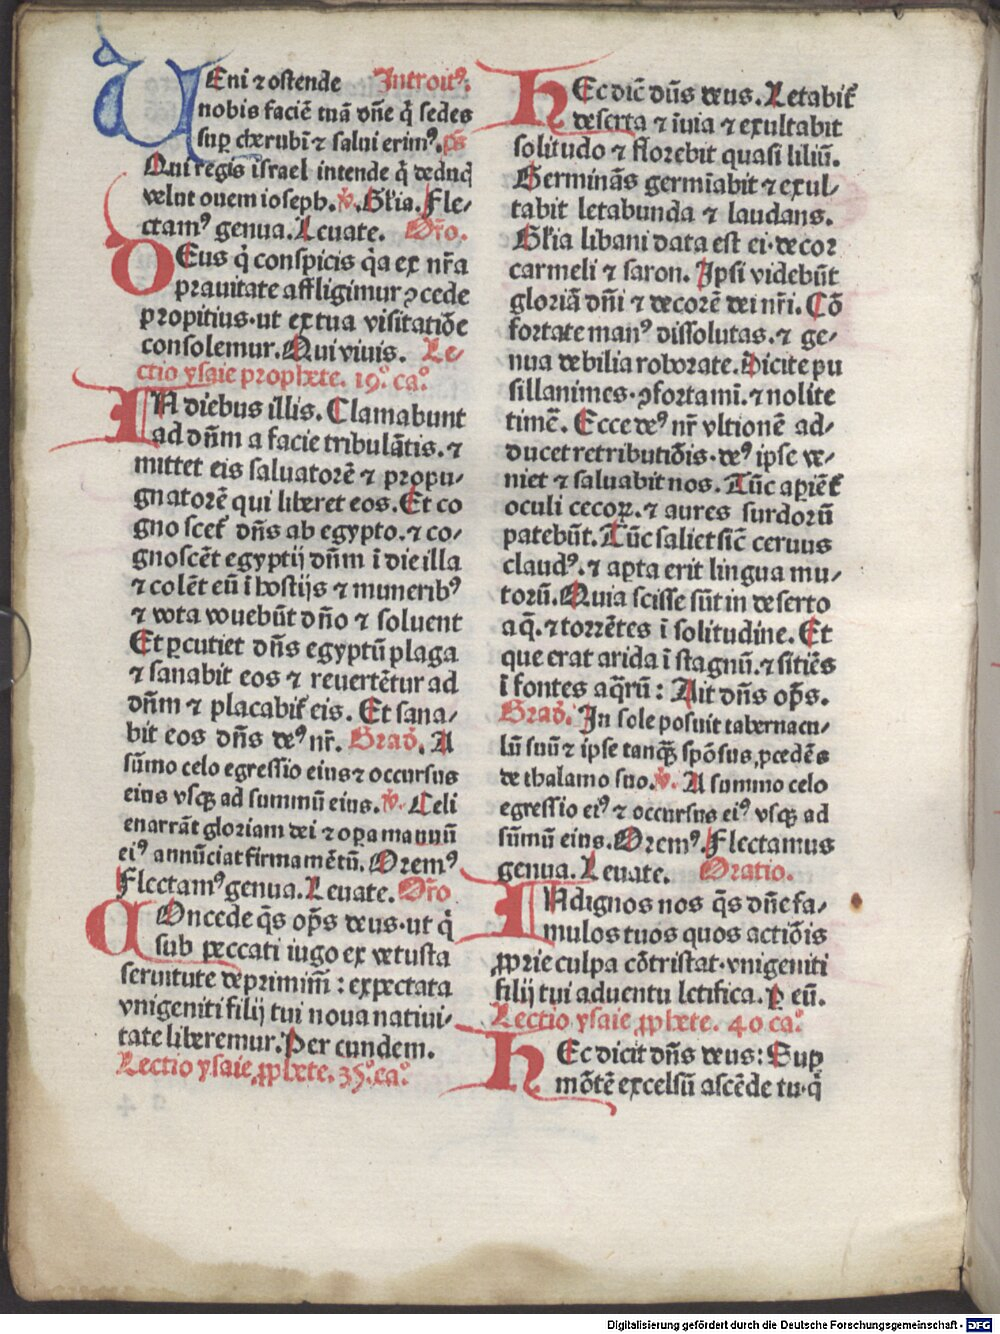 UEni ⁊ ostende Introitꝰ.
nobis faciē tuā dn̄e q̇ sedes
suꝑ cherubī ⁊ salui erimꝰ. ps̄
Qui regis israel intende q̇ deducꝭ
velut ouem ioseph. ℣. Gl̄ia. Fle⸗
ctamꝰ genua. Leuate. Or̄o.
DEus q̇ conspicis q̇a ex nr̄a
prauitate affligimur ꝯcede
propitius· ut ex tua visitatiōe
consolemur. Qui viuis. Le⸗
ctio ysaie prophete. 19.° ca.°
IN diebus illis. Clamabunt
ad dn̄m a facie tribulātis. ⁊
mittet eis saluatorē ⁊ propu⸗
gnatorē qui liberet eos. Et co
gnoscet᷑ dn̄s ab egypto. ⁊ co⸗
gnoscēt egyptij dn̄m ī die illa
⁊ colēt eū ī hostijs ⁊ muneribꝰ
⁊ vota vouebūt dn̄o ⁊ soluent
Et ꝑcutiet dn̄s egyptū plaga
⁊ sanabit eos ⁊ reuertētur ad
dn̄m ⁊ placabit᷑ eis. Et sana⸗
bit eos dn̄s deꝰ nr̄. Grad̄. A
sūmo celo egressio eius ⁊ occursus
eius vsqꝫ ad summū eius. ℣. Celi
enarrāt gloriam dei ⁊ oꝑa manuū
eiꝰ annūciat firmamētū. Oremꝰ
Flectamꝰ genua. Leuate. Or̄o
COncede q̄s op̄s deus· ut q̇
sub peccati iugo ex vetusta
seruitute deprimim̄: expectata
vnigeniti filij tui noua natiui⸗
tate liberemur. Per eundem.
Lectio ysaie ꝓphete. 35.° ca.°
HEc dic̄ dn̄s deus. Letabit᷑
deserta ⁊ īuia ⁊ exultabit
solitudo ⁊ florebit quasi liliū.
Germinās germīabit ⁊ exul⸗
tabit letabunda ⁊ laudans.
Gl̄ia libani data est ei· decor
carmeli ⁊ saron. Ipsi videbūt
gloriā dn̄i ⁊ decorē dei nr̄i. Cō
fortate manꝰ dissolutas. ⁊ ge⸗
nua debilia roborate. Dicite pu
sillanimes· ꝯfortamī. ⁊ nolite
timē. Ecce deꝰ nr̄ vltionē ad⸗
ducet retributiōis· deꝰ ipse ve⸗
niet ⁊ saluabit nos. Tūc aꝑiēt᷑
oculi cecoꝝ. ⁊ aures surdorū
patebūt. Tūc saliet sic̄ ceruus
claudꝰ. ⁊ aꝑta erit lingua mu⸗
torū. Quia scisse sūt in deserto
aq̄. ⁊ torrētes ī solitudine. Et
que erat arida ī stagnū. ⁊ sitiēs
ī fontes aq̄rū: Ait dn̄s op̄s.
Grad̄. In sole posuit tabernacu⸗
lū suū ⁊ ipse tanqꝫ̄ spōsus ꝓcedēs
de thalamo suo. ℣. A summo celo
egressio eiꝰ ⁊ occursus eiꝰ vsqꝫ ad
sūmū eius. Oremꝰ. Flectamus
genua. Leuate. Oratio.
INdignos nos q̄s dn̄e fa⸗
mulos tuos quos actiōis
ꝓprie culpa cōtristat· vnigeniti
filij tui aduentu letifica. ꝑ eū.
Lectio ysaie ꝓphete. 40 ca.°
HEc dicit dn̄s deus: Suꝑ
mōtē excelsū ascēde tu· q̇
Digitalisierung gefördert durch die Deutsche Forschungsgemeinschaft - DFG